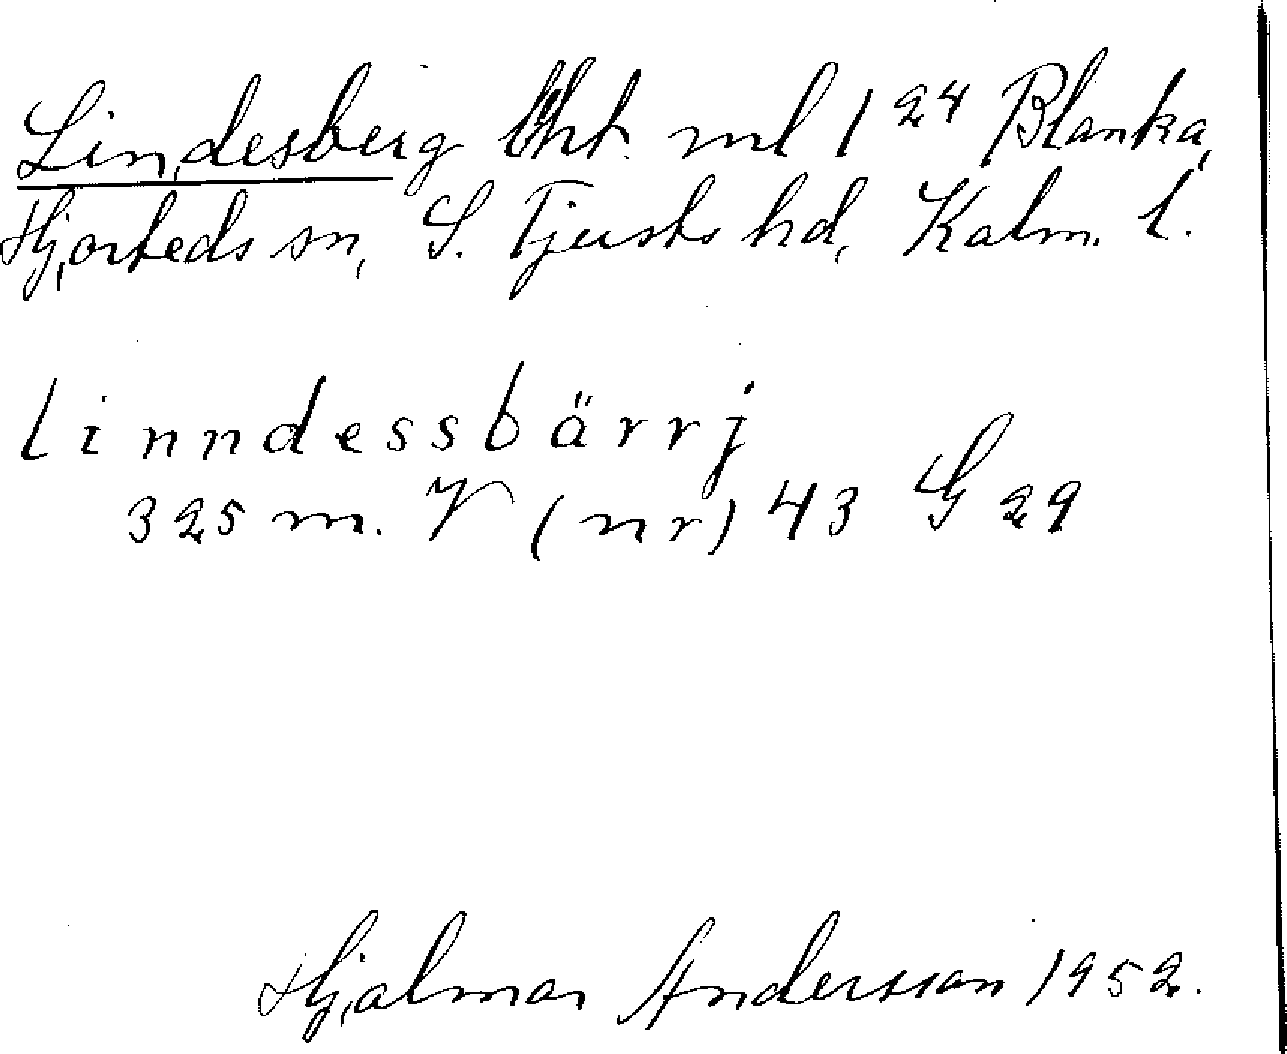 Lindesberg lht. ml 1 24 Blanka,
Hjorteds sn, S. Tjusts hd, Kalm. l.
linndessbärrj
325 m. V (nr) 43 G 29
Hjalmar Andersson 1952.